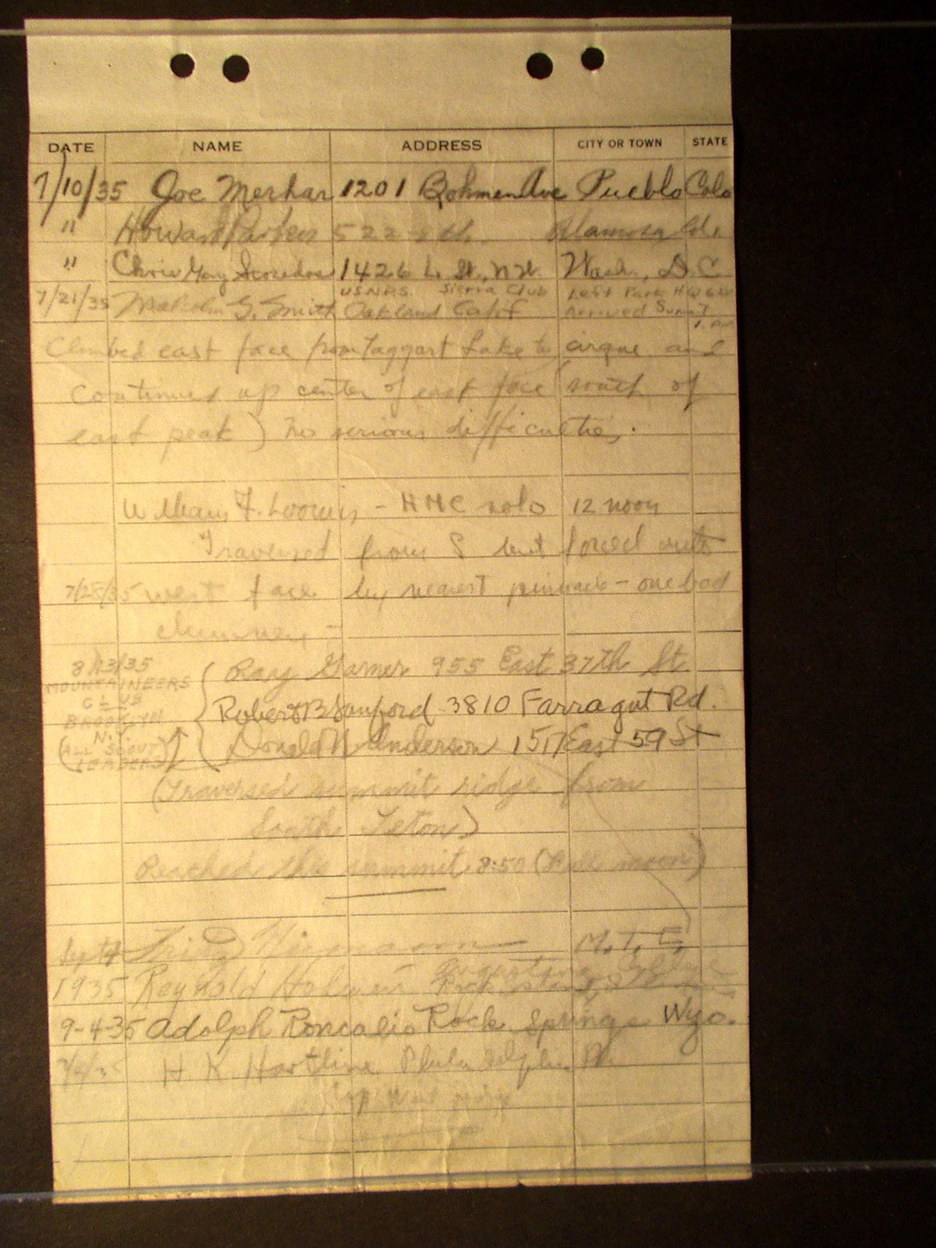 DATE NAME ADDRESS CITY OR TOWN STATE
7/10/35 Joe Merhar 1201 Bohmen Ave Pueblo Colo
" Howard Parker 522 Alamosa
" Chris 1426 L St. N.W. Wash. D.C
7/21/35 Malcolm G. Smith Sierra Club Oakland Calif Left Park HQ Arrived Summit
Climbed east face from Taggart Lake to cirque and
continued up center of east face (south of
east peak) no serious difficulties.
William F. Loomis - HMC solo 12 noon
Traversed from S but forced onto
7/28/35 west face by nearest pinnacle - one bad
chimney -
8/13/35 Ray Garner 955 East 37th St.
MOUNTAINEERS CLUB BROOKLYN N.Y. Robert B Sanford 3810 Farragut Rd.
(ALL SCOUT LEADERS) Donald W Anderson 1517 East 59 St
(Traversed summit ridge from
South Teton)
Reached this summit 8:50 (Full moon)
Sept 4 Fritiof M.
1935 Reynold
9-4-35 Adolph Roncalio Rock Springs Wyo.
H. K. Hartline Philadelphia Pa.